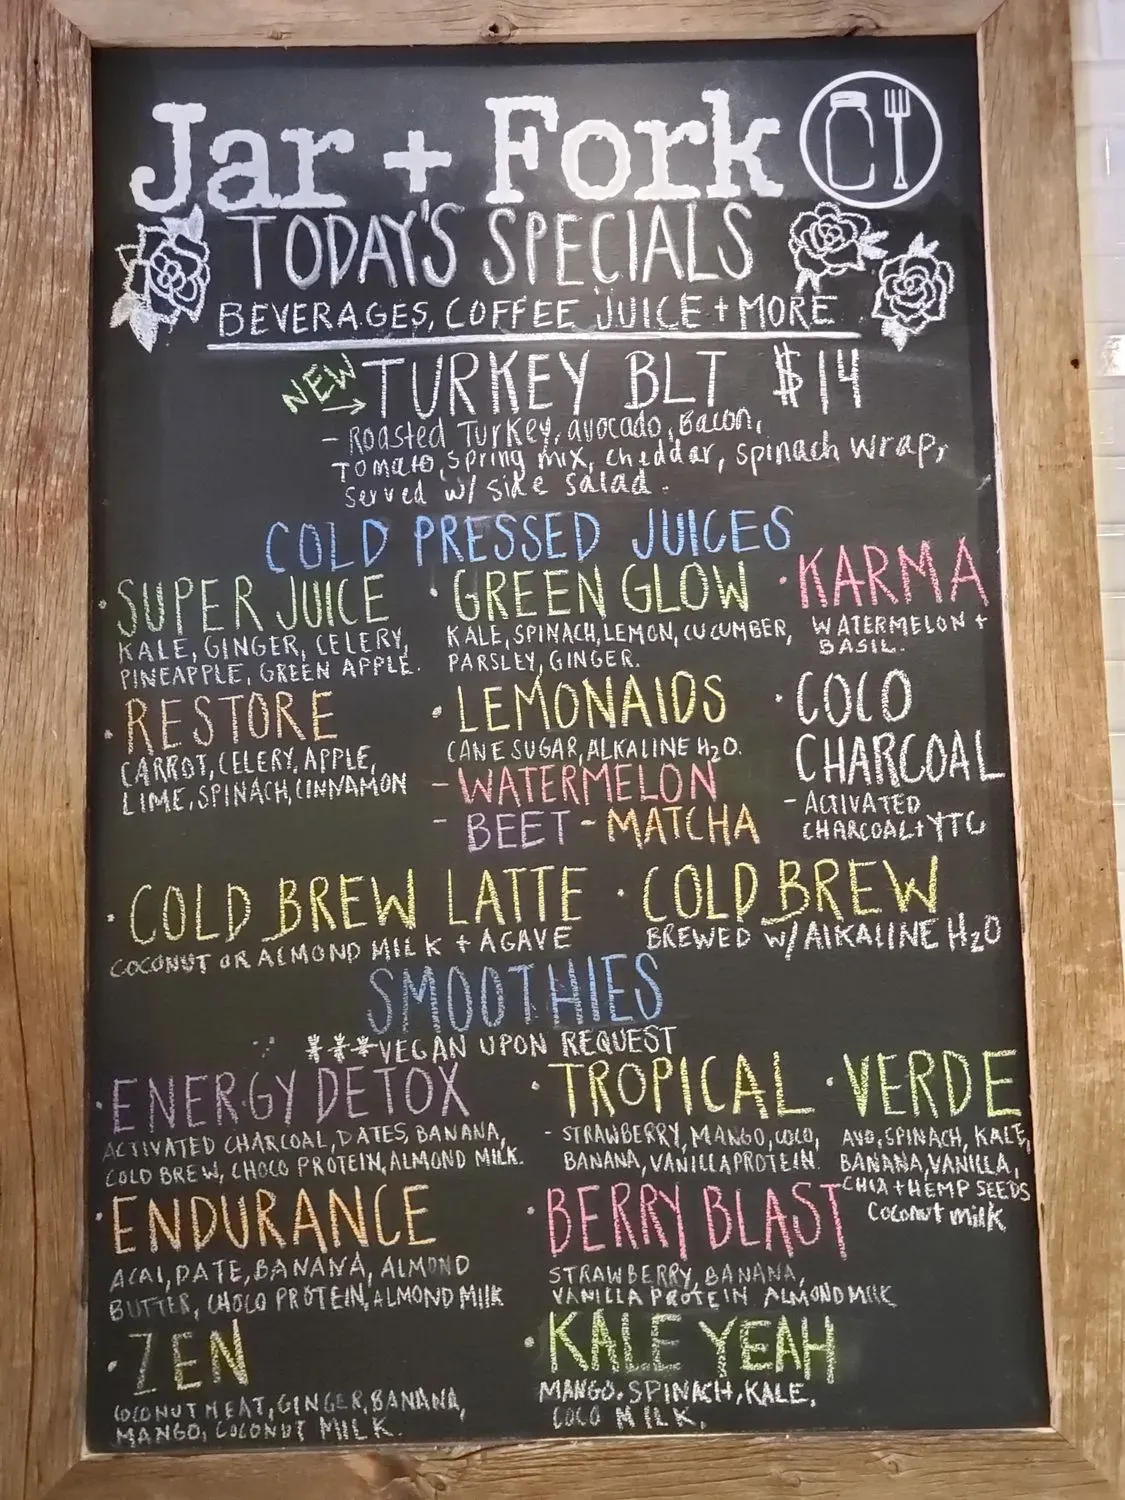 Jar + Fork
TODAY'S SPECIALS
BEVERAGES, COFFEE JUICE + MORE
NEW → TURKEY BLT $14
- Roasted Turkey, avocado, Bacon,
Tomato, spring mix, cheddar, spinach wrap,
Served w/ side salad.
COLD PRESSED JUICES
• SUPER JUICE
KALE, GINGER, CELERY,
PINEAPPLE, GREEN APPLE.
• GREEN GLOW
KALE, SPINACH, LEMON, CUCUMBER,
PARSLEY, GINGER.
• KARMA
WATERMELON +
BASIL.
• RESTORE
CARROT, CELERY, APPLE,
LIME, SPINACH, CINNAMON
• LEMONAIDS
CANE SUGAR, ALKALINE H2O.
- WATERMELON
- BEET - MATCHA
• COCO
CHARCOAL
- ACTIVATED
CHARCOAL + YTC
• COLD BREW LATTE
COCONUT OR ALMOND MILK + AGAVE
• COLD BREW
BREWED w/ ALKALINE H2O
SMOOTHIES
***VEGAN UPON REQUEST
• ENERGY DETOX
ACTIVATED CHARCOAL, DATES, BANANA,
COLD BREW, CHOCO PROTEIN, ALMOND MILK.
• TROPICAL
- STRAWBERRY, MANGO, COCO,
BANANA, VANILLA PROTEIN
• VERDE
AVO, SPINACH, KALE,
BANANA, VANILLA,
CHIA + HEMP SEEDS
Coconut milk
• ENDURANCE
ACAI, DATE, BANANA, ALMOND
BUTTER, CHOCO PROTEIN, ALMOND MILK
• BERRY BLAST
STRAWBERRY, BANANA,
VANILLA PROTEIN ALMOND MILK
• ZEN
COCONUT MEAT, GINGER, BANANA,
MANGO, COCONUT MILK.
• KALE YEAH
MANGO, SPINACH, KALE,
COCO MILK.